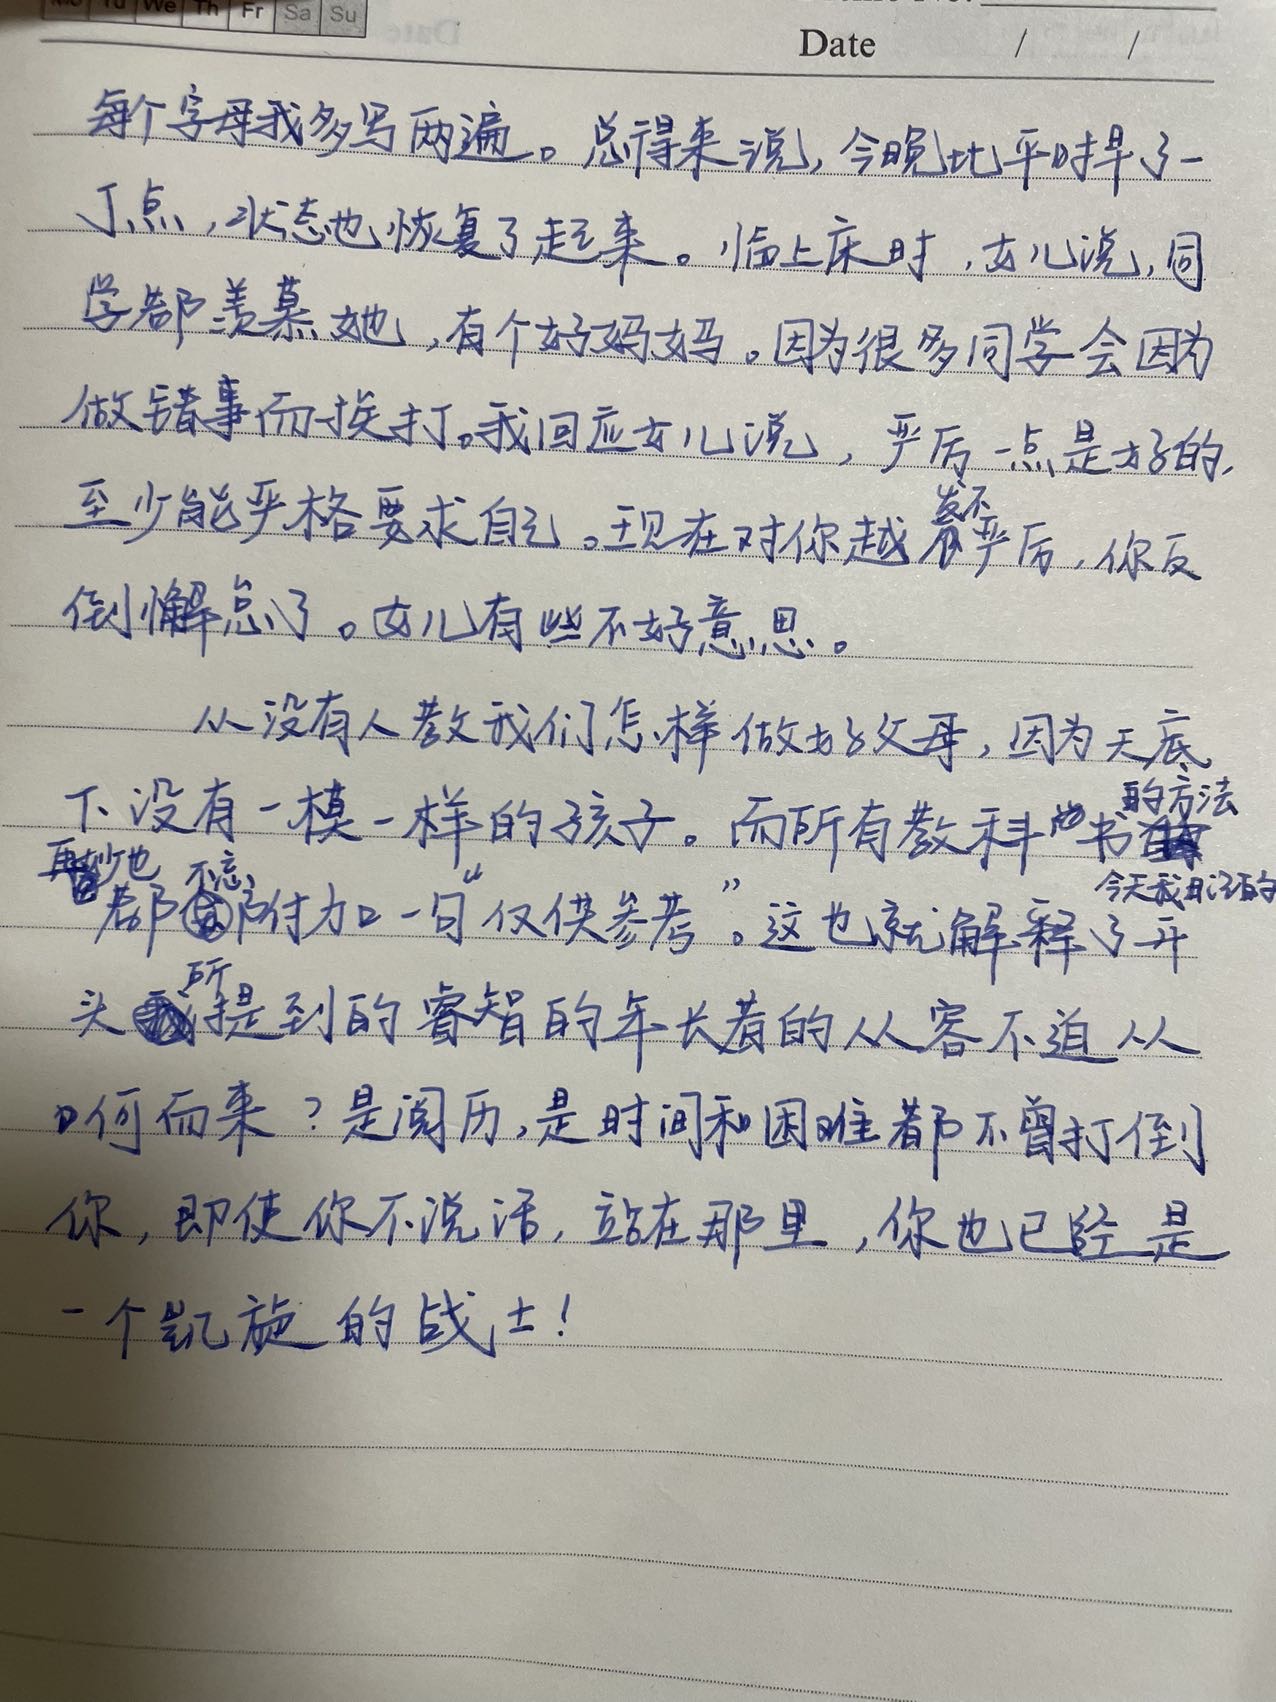 Mo Tu We Th Fr Sa Su
Date / /
每个字母我多写两遍。总得来说,今晚比平时早了一
丁点,状态也恢复了起来。临上床时,女儿说,同
学都羡慕她,有个好妈妈。因为很多同学会因为
做错事而挨打。我回应女儿说,严厉一点是好的,
至少能严格要求自己。现在对你越发不严厉,你反
倒懈怠了。女儿有些不好意思。
从没有人教我们怎样做好父母,因为天底
下没有一模一样的孩子。而所有教科书的方法
再妙也都不忘附加一句“仅供参考”。这也就解释了今天我日记的开
头所提到的睿智的年长者的从容不迫从
何而来?是阅历,是时间和困难都不曾打倒
你,即使你不说话,站在那里,你也已经是
一个凯旋的战士!